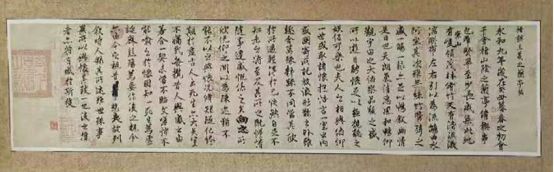 褚模王羲之蘭亭帖
永和九年歲在癸丑暮春之初會
于會稽山陰之蘭亭脩稧事
也羣賢畢至少長咸集此地
有崇山峻領茂林脩竹又有清流激
湍暎帶左右引以為流觴曲水
列坐其次雖無絲竹管弦之
盛一觴一詠亦足以暢敘幽情
是日也天朗氣清惠風和暢仰
觀宇宙之大俯察品類之盛
所以遊目騁懷足以極視聽之
娛信可樂也夫人之相與俯仰
一世或取諸懷抱悟言一室之內
或因寄所託放浪形骸之外雖
趣舍萬殊靜躁不同當其欣
於所遇暫得於己快然自足不
知老之將至及其所之既惓情
隨事遷感慨係之矣向之所
欣俛仰之間以為陳迹猶不
能不以之興懷況脩短隨化終
期於盡古人云死生亦大矣豈
不痛哉每攬昔人興感之由
若合一契未嘗不臨文嗟悼不
能喻之於懷固知一死生為虛
誕齊彭殤為妄作後之視今
亦由今之視昔悲夫故列
敘時人錄其所述雖世殊事
異所以興懷其致一也後之攬
者亦將有感於斯文